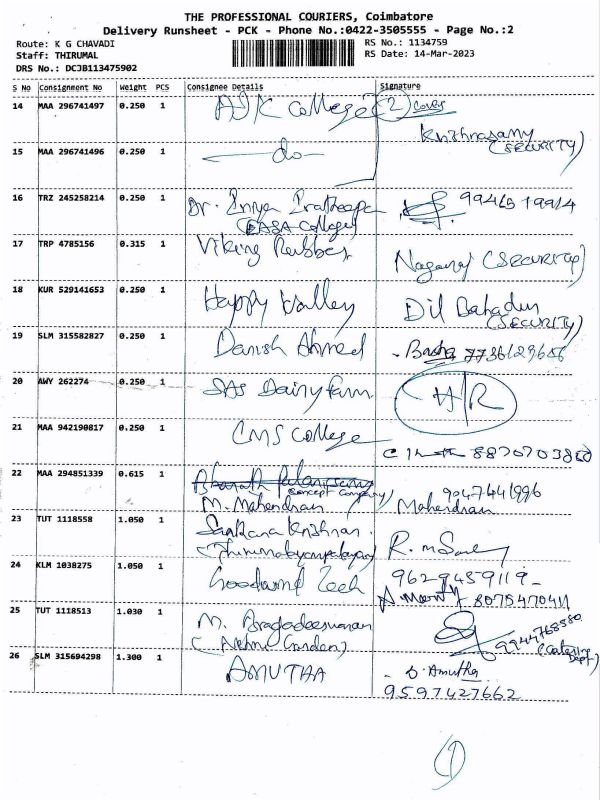 THE PROFESSIONAL COURIERS, Coimbatore
Delivery Runsheet - PCK - Phone No.:0422-3505555 - Page No.:2
Route: K G CHAVADI RS No.: 1134759
Staff: THIRUMAL RS Date: 14-Mar-2023
DRS No.: DCJB113475902
S No Consignment No Weight PCS Consignee Details Signature
14 MAA 296741497 0.250 1 AJK College (2) Cover
Krishnasamy
(SECURITY)
15 MAA 296741496 0.250 1 do
16 TRZ 245258214 0.250 1 Dr.
(EASA College)
17 TRP 4785156 0.315 1 Viking Rubber
Nagaraj (SECURITY)
18 KUR 529141653 0.250 1 Happy Valley Dil Bahadur
(SECURITY)
19 SLM 315582827 0.250 1 Danish Ahmed - Basha
20 AWY 262274 0.250 1 SAS Dairy farm H/R
21 MAA 942190817 0.250 1 CMS College
22 MAA 294851339 0.615 1
(Concept Company) 9047441996
M. Mahendran Mahendran
23 TUT 1118558 1.050 1 Sankara Krishnan
24 KLM 1038275 1.050 1 Goodwind Tech 9629459119
8075470411
25 TUT 1118513 1.030 1 M.
9944768580
(Catering Dept)
26 SLM 315694298 1.300 1 AMUTHA - D. Amutha
9597427662
(1)